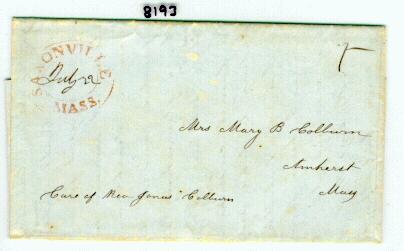 8193
SAXONVILLE
July 22
MASS.
Mrs Mary B Colburn
Amherst
Mass
Care of Rev Jonas Colburn